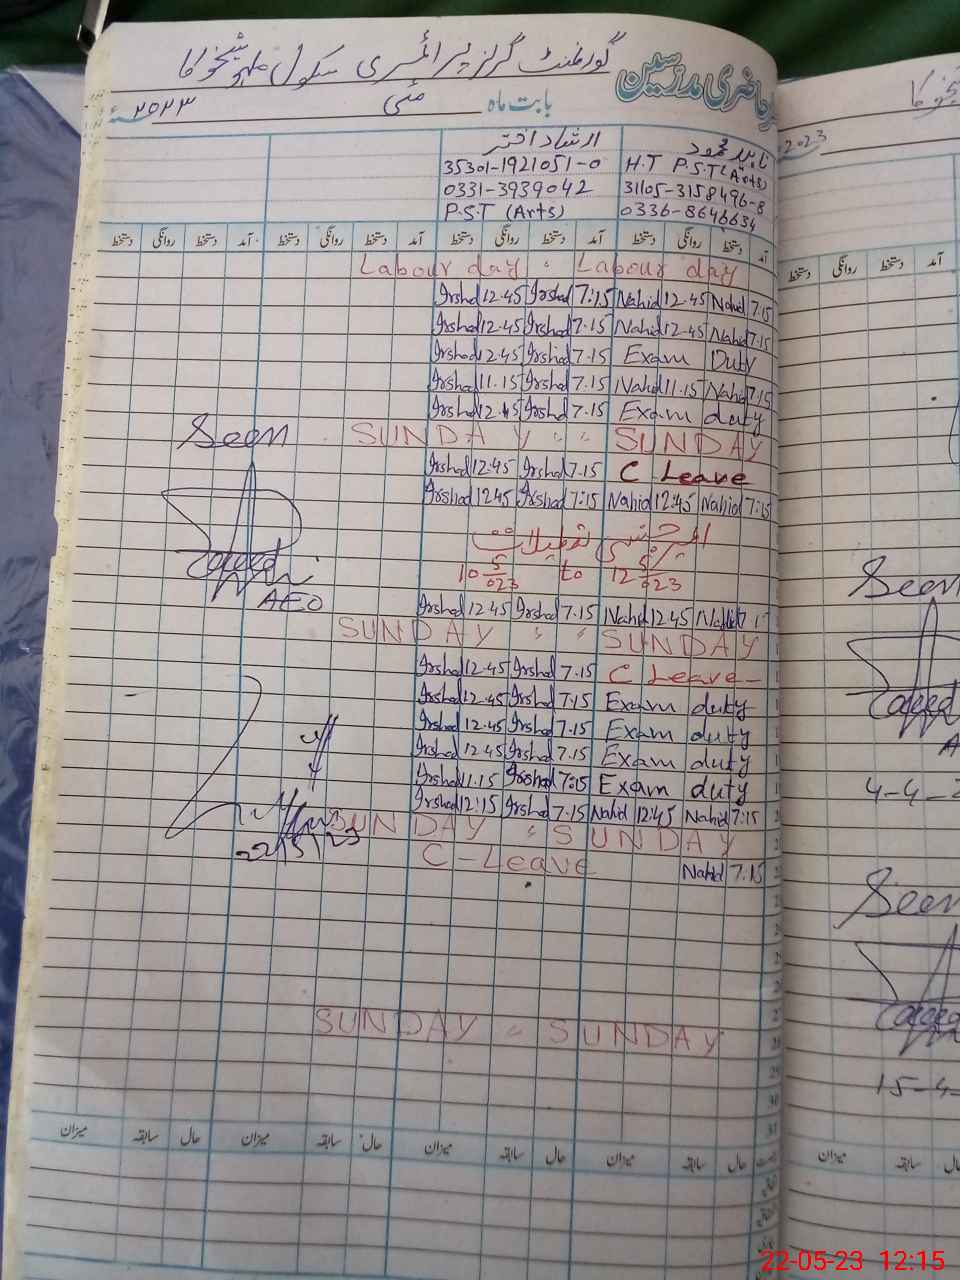 گورنمنٹ گرلز پرائمری سکول
حاضری مدرسین
بابت ماہ مئی ۲۰۲۳ء
ناہید محمود
H.T P.S.T (Arts)
31105-3158496-8
0336-8646634
ارشاد اختر
35301-1921051-0
0331-3939042
P.S.T (Arts)
آمد دستخط روانگی دستخط آمد دستخط روانگی دستخط آمد دستخط روانگی دستخط آمد دستخط روانگی دستخط
Labour day " Labour day
Irshad 12.45 Irshad 7:15 Nahid 12.45 Nahid 7.15
Irshad 12.45 Irshad 7.15 Nahid 12.45 Nahid 7.15
Irshad 12.45 Irshad 7.15 Exam Duty
Irshad 11.15 Irshad 7.15 Nahid 11.15 Nahid 7.15
Irshad 12.45 Irshad 7.15 Exam duty
SUNDAY " " SUNDAY
Irshad 12.45 Irshad 7.15 C Leave
Irshad 1245 Irshad 7:15 Nahid 12:45 Nahid 7:15
ایمرجنسی تعطیلات
10 5/023 to 12 5/023
Irshad 12.45 Irshad 7.15 Nahid 12.45 Nahid 7.15
SUNDAY " " SUNDAY
Irshad 12.45 Irshad 7.15 C Leave-
Irshad 12.45 Irshad 7.15 Exam duty
Irshad 12.45 Irshad 7.15 Exam duty
Irshad 12.45 Irshad 7.15 Exam duty
Irshad 11.15 Irshad 7:15 Exam duty
Irshad 12:15 Irshad 7.15 Nahid 12:45 Nahid 7:15
SUNDAY " SUNDAY
C-Leave Nahid 7.15
SUNDAY " SUNDAY
Seen
AEO
22/5/23
حال سابقہ میزان حال سابقہ میزان حال سابقہ میزان حال سابقہ میزان
2023
آمد دستخط روانگی دستخط
Seen
4-4-2
Seen
15-4-
حال سابقہ میزان
22-05-23 12:15